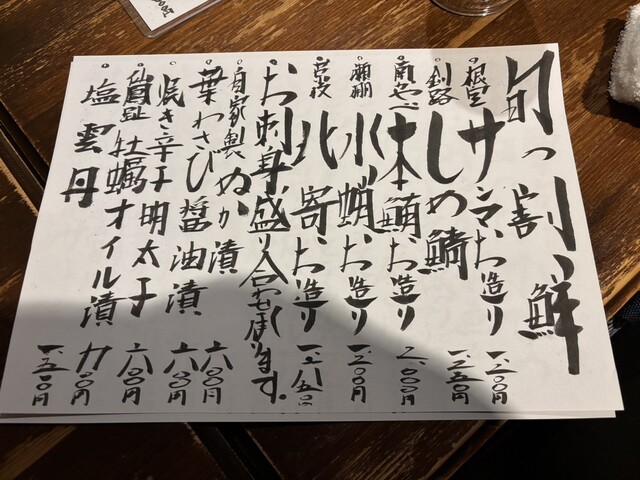 旬っ割、鮮
根室 サンマお造り 一、二〇〇円
釧路 しめ鯖 一、二五〇円
南かやべ 本鮪お造り 二、〇〇〇円
瀬棚 水蛸お造り 一、二〇〇円
北寄お造り 一、八五〇
お刺身盛り合わせ承ります。
自家製ぬか漬 六〇〇円
葉わさび醤油漬 六〇〇円
焼き辛子明太子 六〇〇円
仙鳳趾 牡蠣オイル漬 九〇〇円
塩雲丹 一、五〇〇円